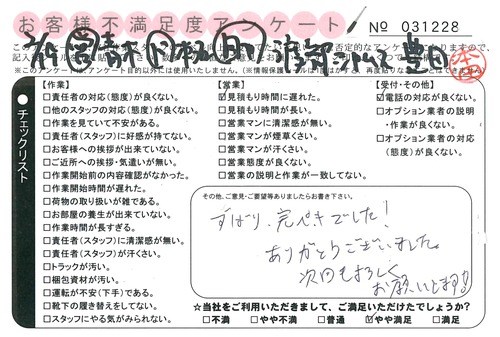 お客様不満足度アンケート
№ 031228
チェックリスト
【作業】
□責任者の対応(態度)が良くない。
□他のスタッフの対応(態度)が良くない。
□作業を見ていて不安がある。
□責任者(スタッフ)に好感が持てない。
□お客様への挨拶が出来ていない。
□ご近所への挨拶・気遣いが無い。
□作業開始前の内容確認がなかった。
□作業開始時間が遅れた。
□荷物の取り扱いが雑である。
□お部屋の養生が出来ていない。
□作業時間が長すぎる。
□責任者(スタッフ)に清潔感が無い。
□責任者(スタッフ)が汗さい。
□トラックが汚い。
□梱包資材が汚い。
□運転が不安(下手)である。
□靴下の履き替えをしてない。
□スタッフにやる気がみられない。
【営業】
☑見積もり時間に遅れた。
□見積もり時間が長い。
□営業マンに清潔感が無い。
□営業マンが煙草くさい。
□営業マンが汗さい。
□営業態度が良くない。
□営業の説明と作業が一致してない。
【受付・その他】
☑電話の対応が良くない。
□オプション業者の説明
・作業が良くない。
□オプション業者の対応
(態度)が良くない。
その他、ご意見・ご要望等ありましたらお書き下さい。
ずばり、完ぺきでした!
ありがとうございました。
次回もよろしく
お願いします!!
☆当社をご利用いただきまして、ご満足いただけたでしょうか?
□不満 □やや不満 □普通 ☑やや満足 □満足